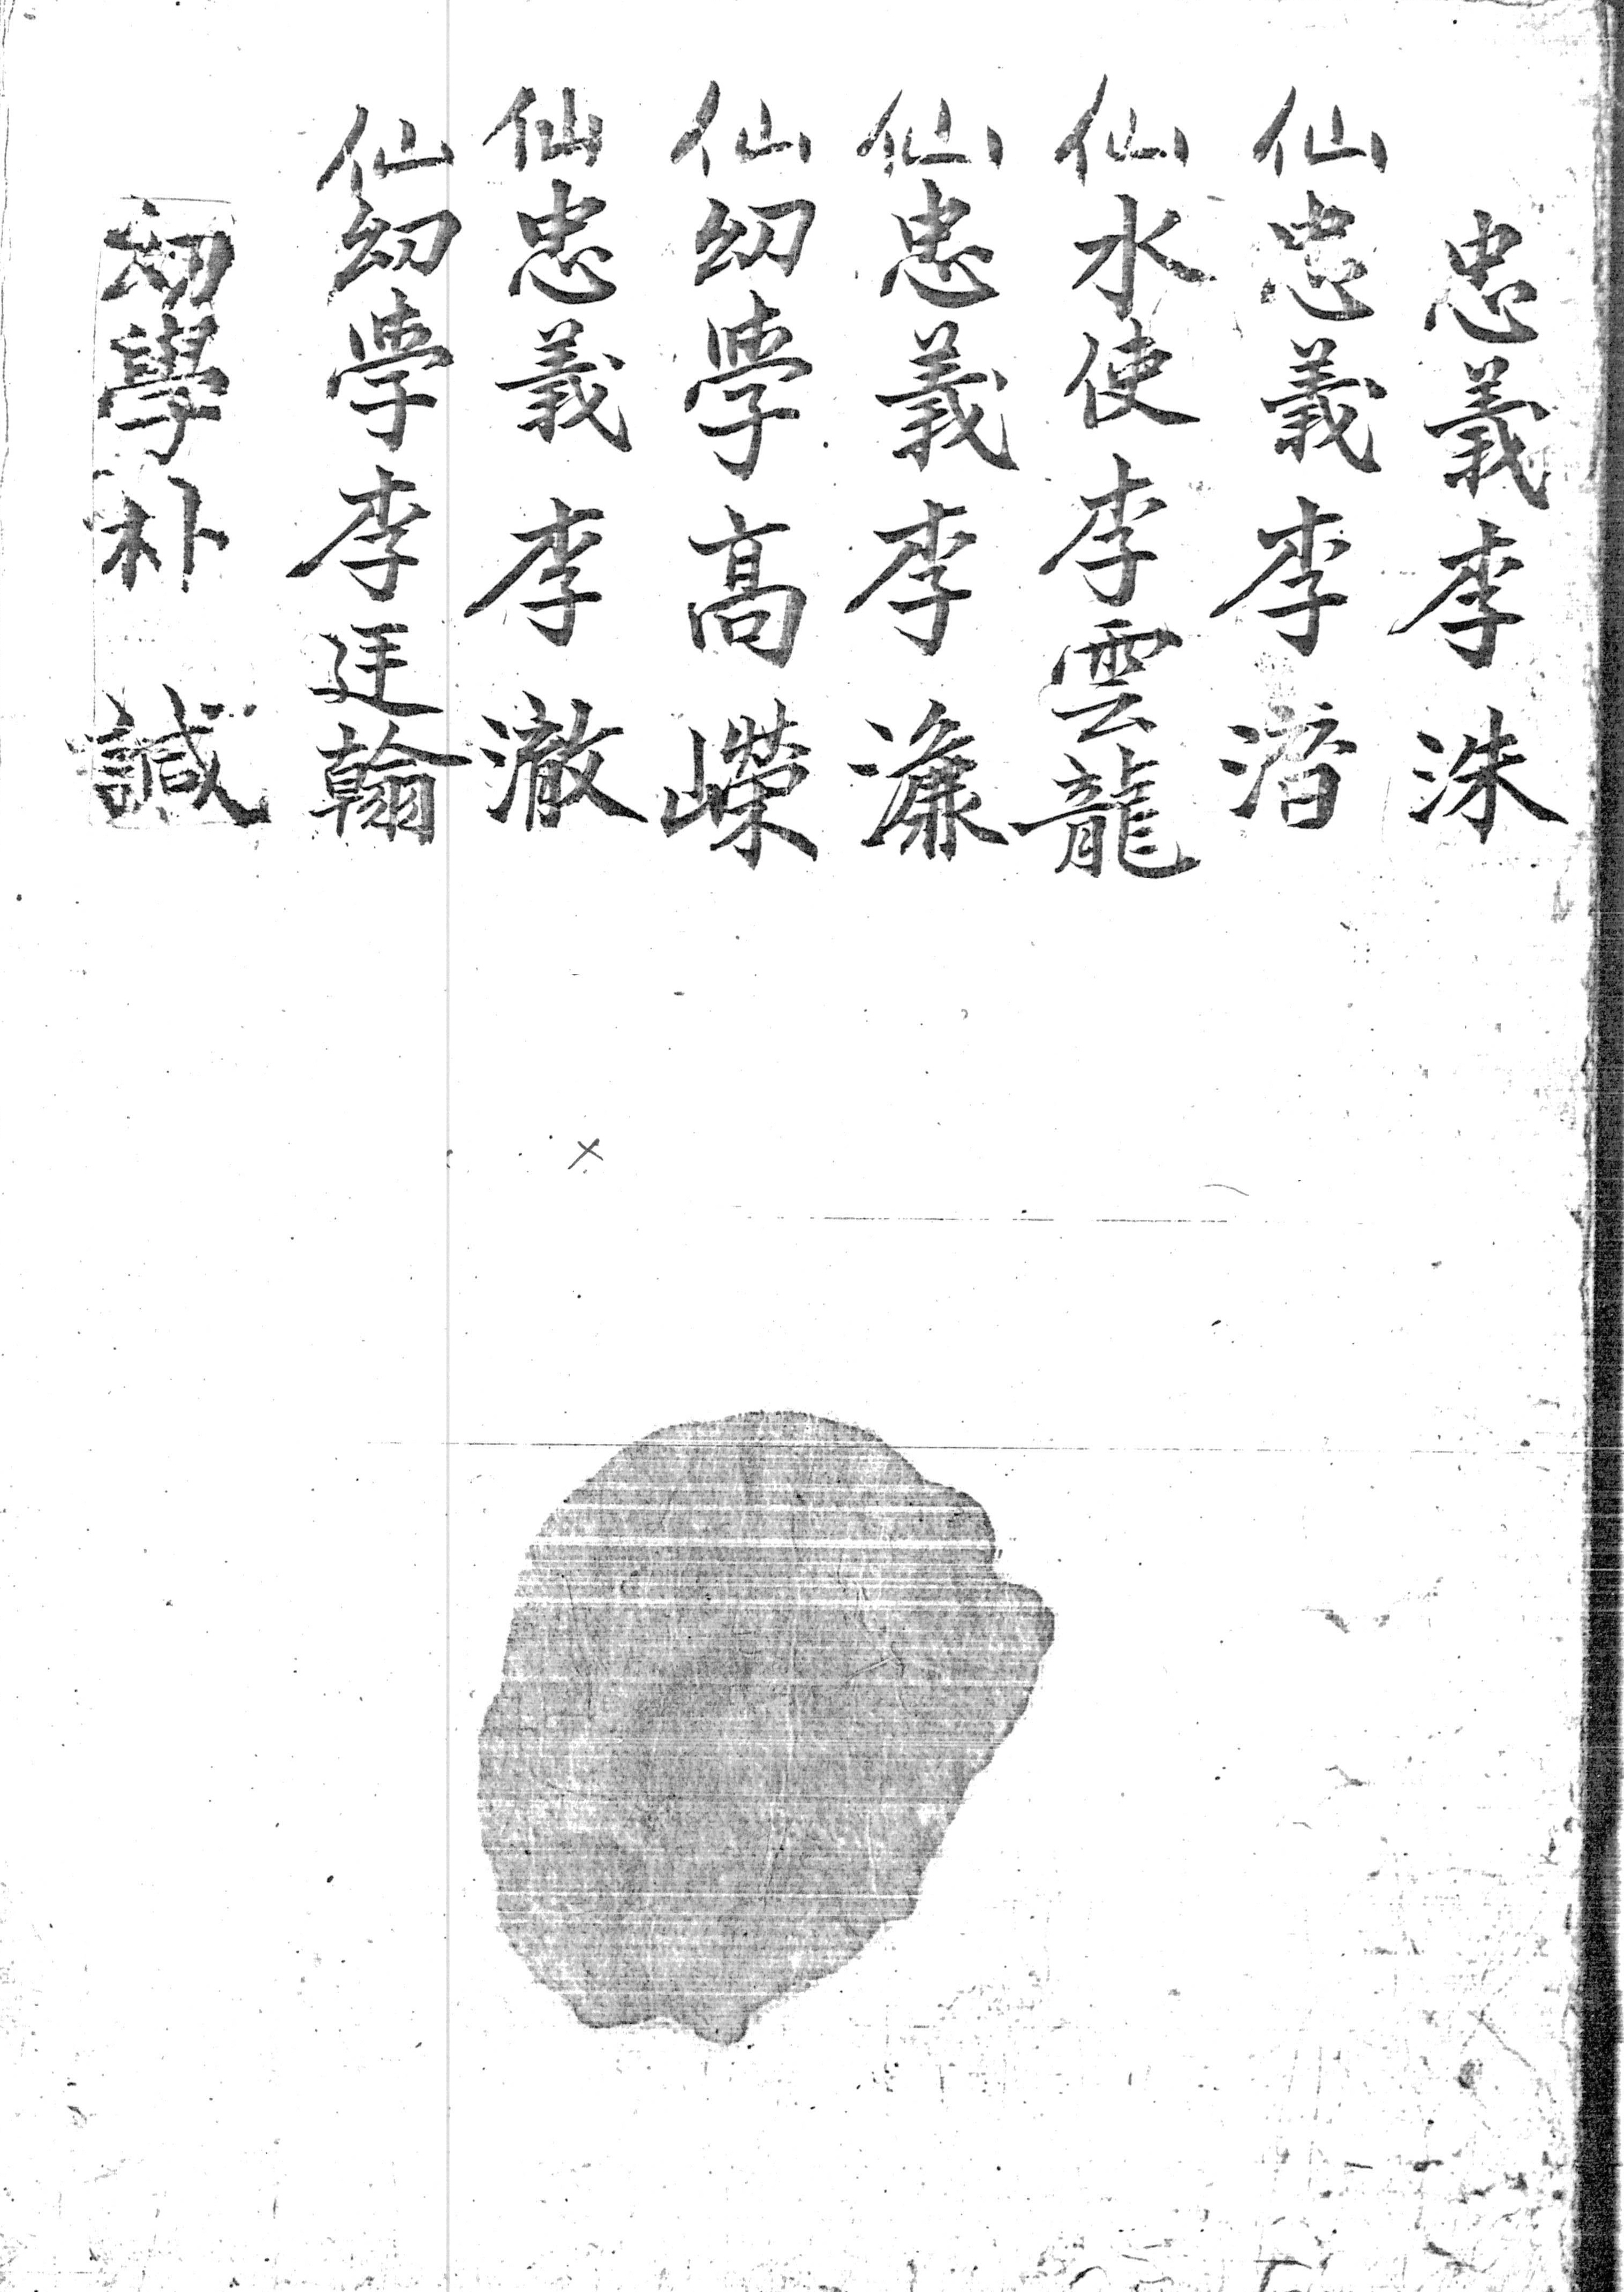 忠義李洙
仙忠義李湝
仙水使李雲龍
仙忠義李濂
仙幼學高嶸
仙忠義李澈
仙幼學李廷翰
幼學朴諴